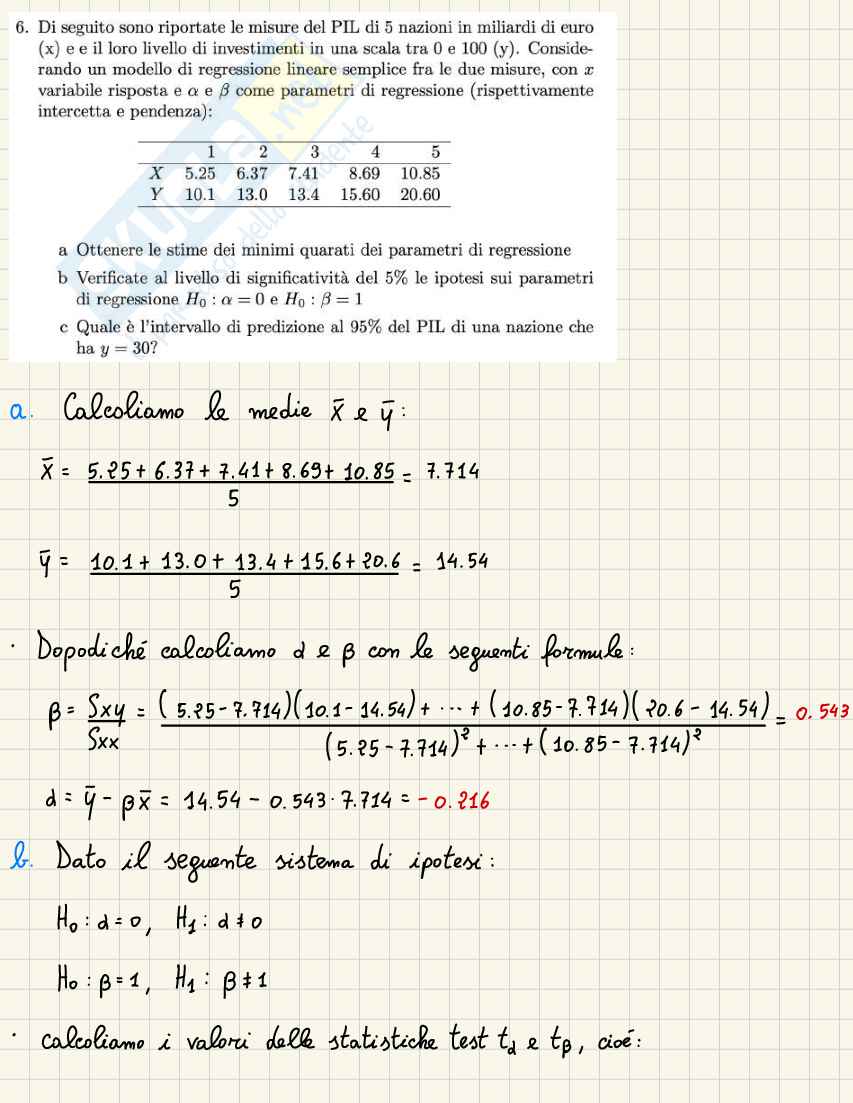 6. Di seguito sono riportate le misure del PIL di 5 nazioni in miliardi di euro
(x) e e il loro livello di investimenti in una scala tra 0 e 100 (y). Conside-
rando un modello di regressione lineare semplice fra le due misure, con x
variabile risposta e α e β come parametri di regressione (rispettivamente
intercetta e pendenza):
1 2 3 4 5
X 5.25 6.37 7.41 8.69 10.85
Y 10.1 13.0 13.4 15.60 20.60
a Ottenere le stime dei minimi quarati dei parametri di regressione
b Verificate al livello di significatività del 5% le ipotesi sui parametri
di regressione H₀ : α = 0 e H₀ : β = 1
c Quale è l'intervallo di predizione al 95% del PIL di una nazione che
ha y = 30?
a. Calcoliamo le medie x̄ e ȳ:
x̄ = 5.25 + 6.37 + 7.41 + 8.69 + 10.85 / 5 = 7.714
ȳ = 10.1 + 13.0 + 13.4 + 15.6 + 20.6 / 5 = 14.54
· Dopodiché calcoliamo α e β con le seguenti formule:
β = Sxy / Sxx = (5.25 - 7.714)(10.1 - 14.54) + ··· + (10.85 - 7.714)(20.6 - 14.54) / (5.25 - 7.714)² + ··· + (10.85 - 7.714)² = 0.543
α = ȳ - βx̄ = 14.54 - 0.543 · 7.714 = -0.216
b. Dato il seguente sistema di ipotesi:
H₀ : α = 0, H₁ : α ≠ 0
H₀ : β = 1, H₁ : β ≠ 1
· calcoliamo i valori delle statistiche test tα e tβ, cioé: